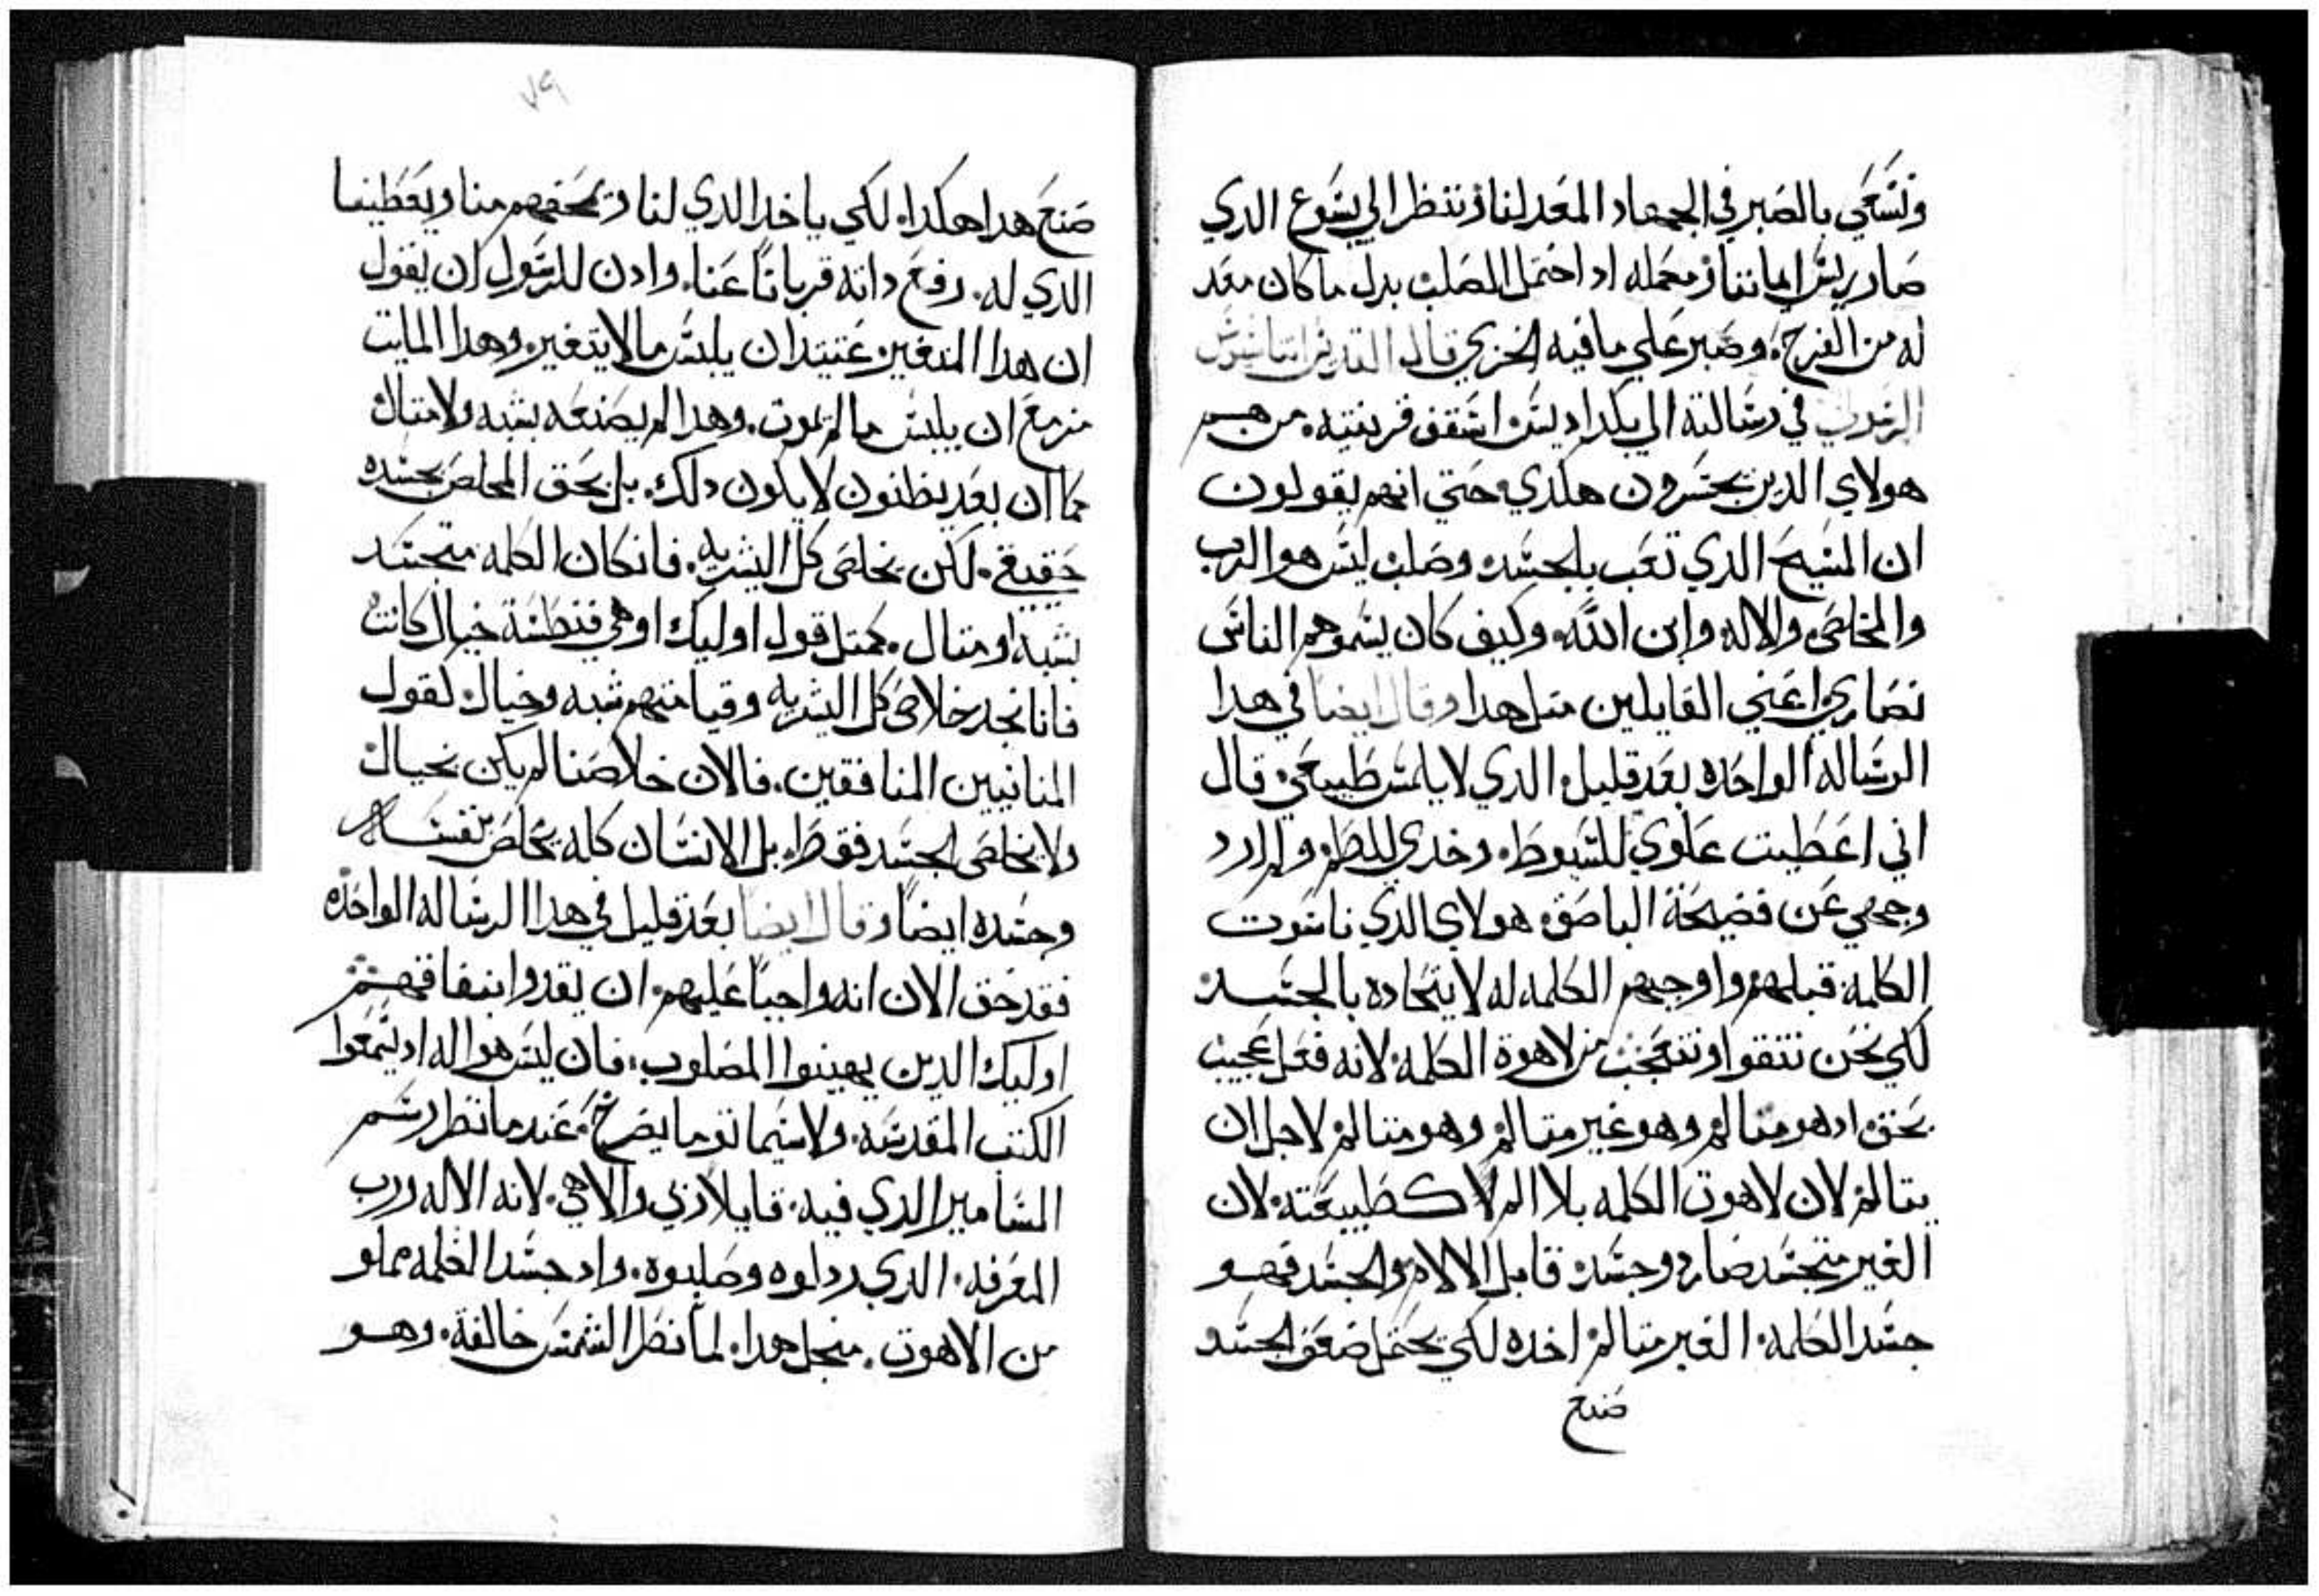 ونسعي بالصبر في الجهاد المعد لنا وننتظر الي يسوع الدي
صار ريس ايماننا ومكمله اد احتمل الصلب بدل ما كان معد
له من الفرح، وصبر علي ما فيه الخزي قال القديس اتناسيوس
الرسولي في رسالته الي ابكداديس اسقف قرنتيه. من هم
هولاي الدين يجسرون هكدي حتي انهم يقولون
ان المسيح الدي تعب بالجسد وصلب ليس هو الرب
والمخلص والاله وابن الله. وكيف كان يسموهم الناس
نصاري اعني القايلين متل هدا وقال ايضا في هدا
الرساله الواحده بعد قليل الدي لا يلمس طبيعي قال
اني اعطيت علوي للسوط. وخدي للطم ولم ارد
وجهي عن فضيحة الباصق هولاي الدي ناسوت
الكلمة قبلهم واوجبهم الكلمه له لا يتحاده بالجسد
لكي نحن نتقوا ونتعجب من لاهوة الكلمة لانه فعل عجيب
بحق اد هو متالم وهو غير متالم وهو متالم لاجل ان
يتالم لان لاهوت الكلمه بلا الم لا كطبيعته لان
الغير متجسد صار وجسده قابل الالام والجسد فهو
جسد الكلمه الغير متالم اخده لكي يحتمل ضعف الجسد
صنع
٧٩
صنع هدا هكدا. لكي ياخد الدي لنا ويمحقهم منا ويعطينا
الدي له. رفع داته قرباناً عنا. وادن للرسول ان يقول
ان هدا المتغير عتيد ان يلبس ما لا يتغير. وهدا المايت
مزمع ان يلبس ما لم يموت. وهدا لم يصنعه بشبه ولا متال
كما ان بعد يظنون لا يكون دلك. بل بحق المخلص بجسده
حقيقي. لكن يخلص كل البشريه. فان كان الكلمه متجسد
بشبه او متال. كمتل قول اوليك او هي فنطسة خيال كانت
فانا نجد خلاص كل البشريه وقيامتهم شبه وخيال كقول
المنانيين المنافقين. فالان خلاصنا لم يكن بخيال
ولا يخلص الجسد فقط. بل الانسان كله يخلص بنفسه
وجسده ايضاً وقال ايضا بعد قليل في هدا الرساله الواحده
فقد حق الان انه واجباً عليهم ان يقدوا بنفاقهم
اوليك الدين يهينوا المصلوب. فان ليس هو اله اد ليسمعوا
الكتب المقدسه. ولا سيما توما يصرخ. عند ما نظر رسم
المسامير الدي فيه. قايلا ربي والاهي. لانه الاله ورب
المعرفه. الدي ردلوه وصلبوه. واد جسد الكلمه مملو
من الاهوت. منجل هدا. لما نظر الشمس خالقة. وهو